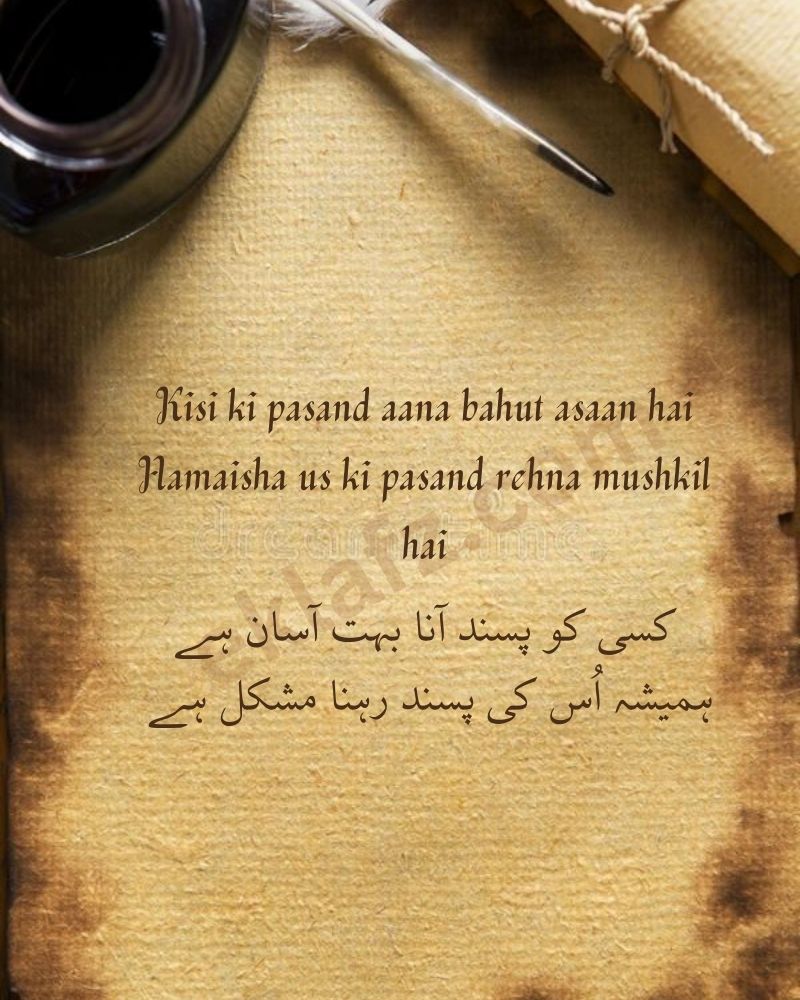 Kisi ki pasand aana bahut asaan hai
Hamaisha us ki pasand rehna mushkil
hai
کسی کو پسند آنا بہت آسان ہے
ہمیشہ اُس کی پسند رہنا مشکل ہے